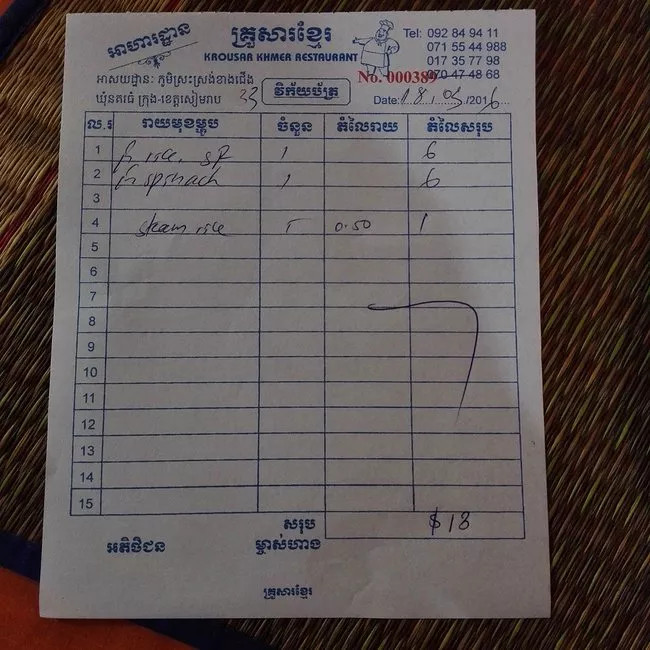 អាហារដ្ឋាន
គ្រួសារខ្មែរ
KROUSAR KHMER RESTAURANT
Tel: 092 84 94 11
071 55 44 988
017 35 77 98
070 47 48 68
No. 000389
អាសយដ្ឋាន: ភូមិស្រះស្រង់ខាងជើង
ឃុំនគរធំ ក្រុង-ខេត្តសៀមរាប 33
វិក័យប័ត្រ
Date: 18. 05 /2016
ល.រ រាយមុខម្ហូប ចំនួន តំលៃរាយ តំលៃសរុប
1 rice. 1 6
2 spinach 1 6
3
4 steam rice 0.50 1
5
6
7
8
9
10
11
12
13
14
15
សរុប $13
អតិថិជន ម្ចាស់ហាង
គ្រួសារខ្មែរ